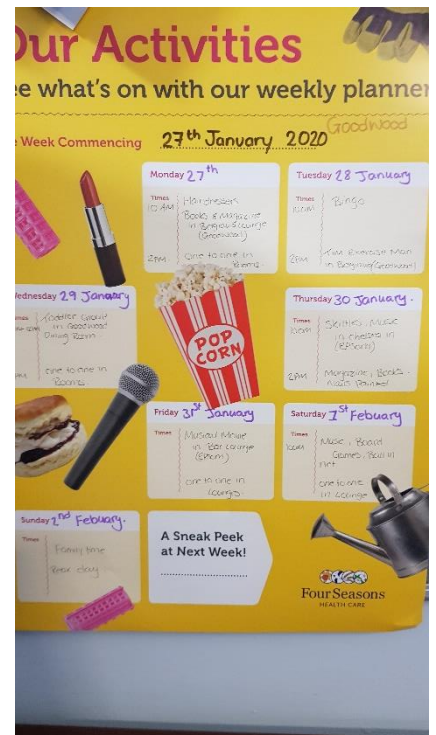 Our Activities
ee what's on with our weekly planner
Goodwood
e Week Commencing 27th January 2020
Monday 27th
Times
10 AM Hairdressers
Books & Magazine
in Lounge
(Goodwood)
2PM one to one in
Rooms.
Tuesday 28 January
Times
10AM Bingo
2PM
in (Goodwood)
Wednesday 29 January
Toddler Group
in Goodwood
Dining Room.
one to one in
Rooms
POP
CORN
Thursday 30 January.
Times
10AM Skittles, Music
in Chelsea in
(Epsom)
2PM Magazine, Books.
Nails Painted
Friday 31st January
Times
Musical Movie
in Bar Lounge
(Epsom)
one to one in
Lounge.
Saturday 1st Febuary
Times
10AM Music, Board
Games, Ball in
net
one to one
in Lounge
Sunday 2nd Febuary.
Times
Family time
day
A Sneak Peek
at Next Week!
Four Seasons
HEALTH CARE